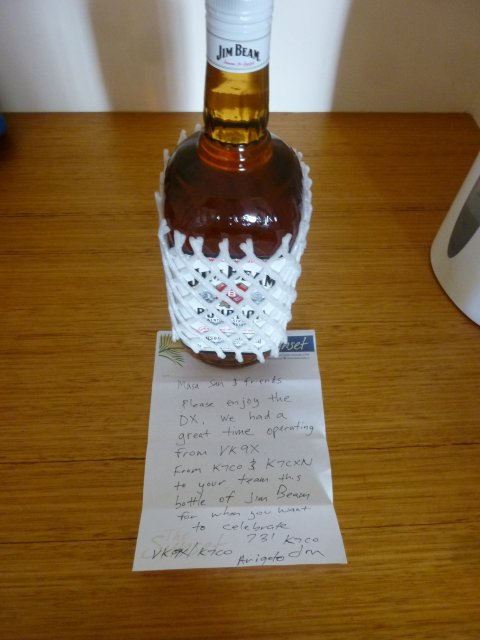 JIM BEAM
JIM BEAM
BOURBON
Sunset
Masa San & friends
Please enjoy the
DX. We had a
great time operating
from VK9X.
From K7CO & K7CXN
to your team this
bottle of Jim Beam
for when you want
to celebrate
73! K7CO
VK9X/K7CO Arigato